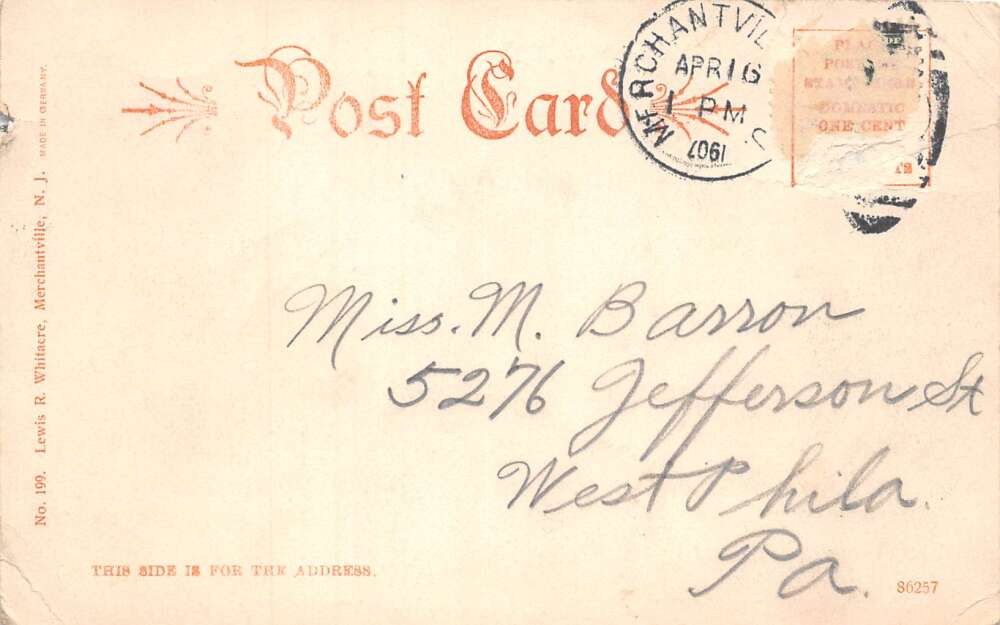 Post Card
MERCHANTVIL
APR 16
1 PM
1907
J.
PLAC
POS
STA
DOMESTIC
ONE CENT
TS
Miss. M. Barron
5276 Jefferson St
West Phila.
Pa.
THIS SIDE IS FOR THE ADDRESS.
86257
No. 199. Lewis R. Whitacre, Merchantville, N. J. MADE IN GERMANY.